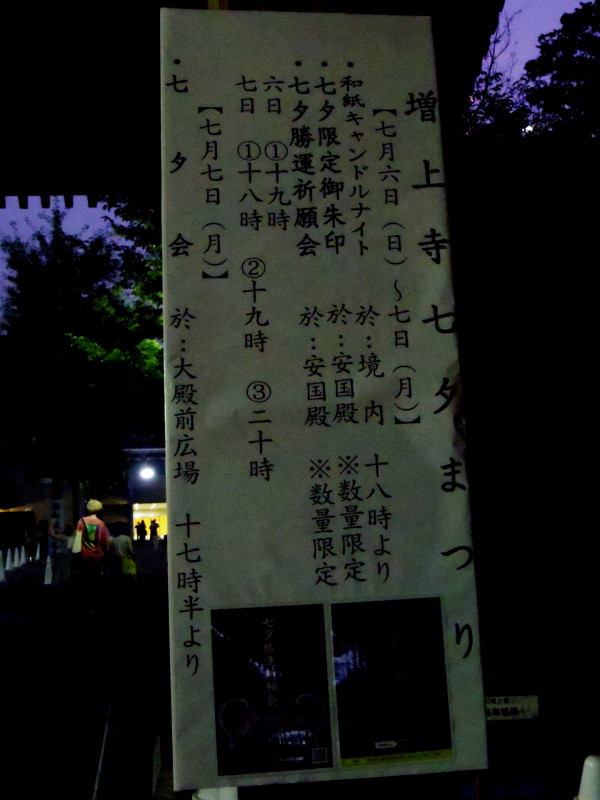 増上寺七夕まつり
【七月六日（日）～七日（月）】
・和紙キャンドルナイト 於：境内 十八時より
・七夕限定御朱印 於：安国殿 ※数量限定
・七夕勝運祈願会 於：安国殿 ※数量限定
六日 ①十九時
七日 ①十八時 ②十九時 ③二十時
【七月七日（月）】
・七夕会 於：大殿前広場 十七時半より
七夕勝運祈願会